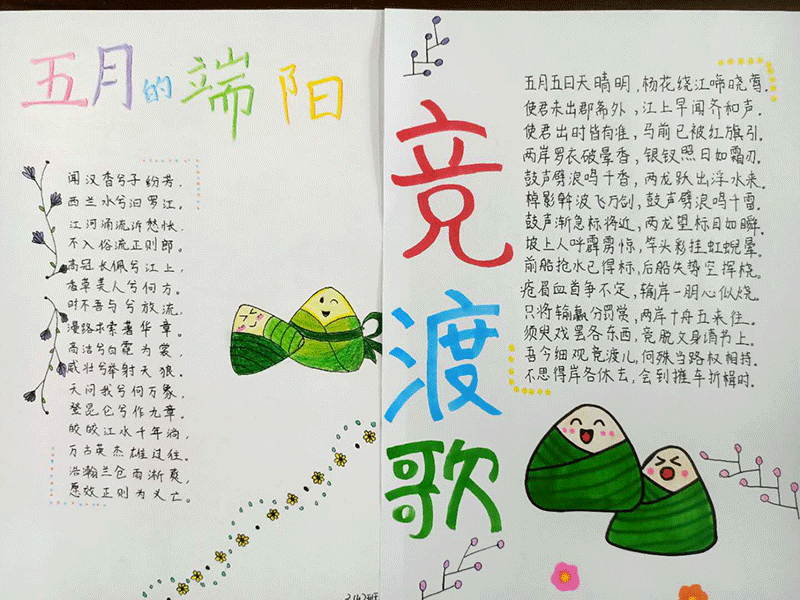 五月的端阳
闻汉香兮子纷芳，
西兰水兮汨罗江。
江河涌流诉愁怅，
不入俗流正则郎。
高冠长佩兮江上，
香草美人兮何方。
时不吾与兮放流，
漫路求索著华章。
高洁兮白霓为裳，
威壮兮举射天狼。
天问我兮何万象，
登昆仑兮作九章。
皎皎江水千年淌，
万古英杰雄过往。
浩瀚兰仓雨淅爽，
愿效正则为义亡。
竞渡歌
五月五日天晴明，杨花绕江啼晓莺。
使君未出郡斋外，江上早闻齐和声。
使君出时皆有准，马前已被红旗引。
两岸罗衣破晕香，银钗照日如霜刃。
鼓声劈浪鸣千香，两龙跃出浮水来。
棹影斡波飞万剑，鼓声劈浪鸣千雷。
鼓声渐急标将近，两龙望标目如瞬。
坡上人呼霹雳惊，竿头彩挂虹蜺晕。
前船抢水已得标，后船失势空挥桡。
疮眉血首争不定，输岸一朋心似烧。
只将输赢分罚赏，两岸十舟五来往。
须臾戏罢各东西，竞脱文身请书上。
吾今细观竞渡儿，何殊当路权相持。
不思得岸各休去，会到摧车折楫时。